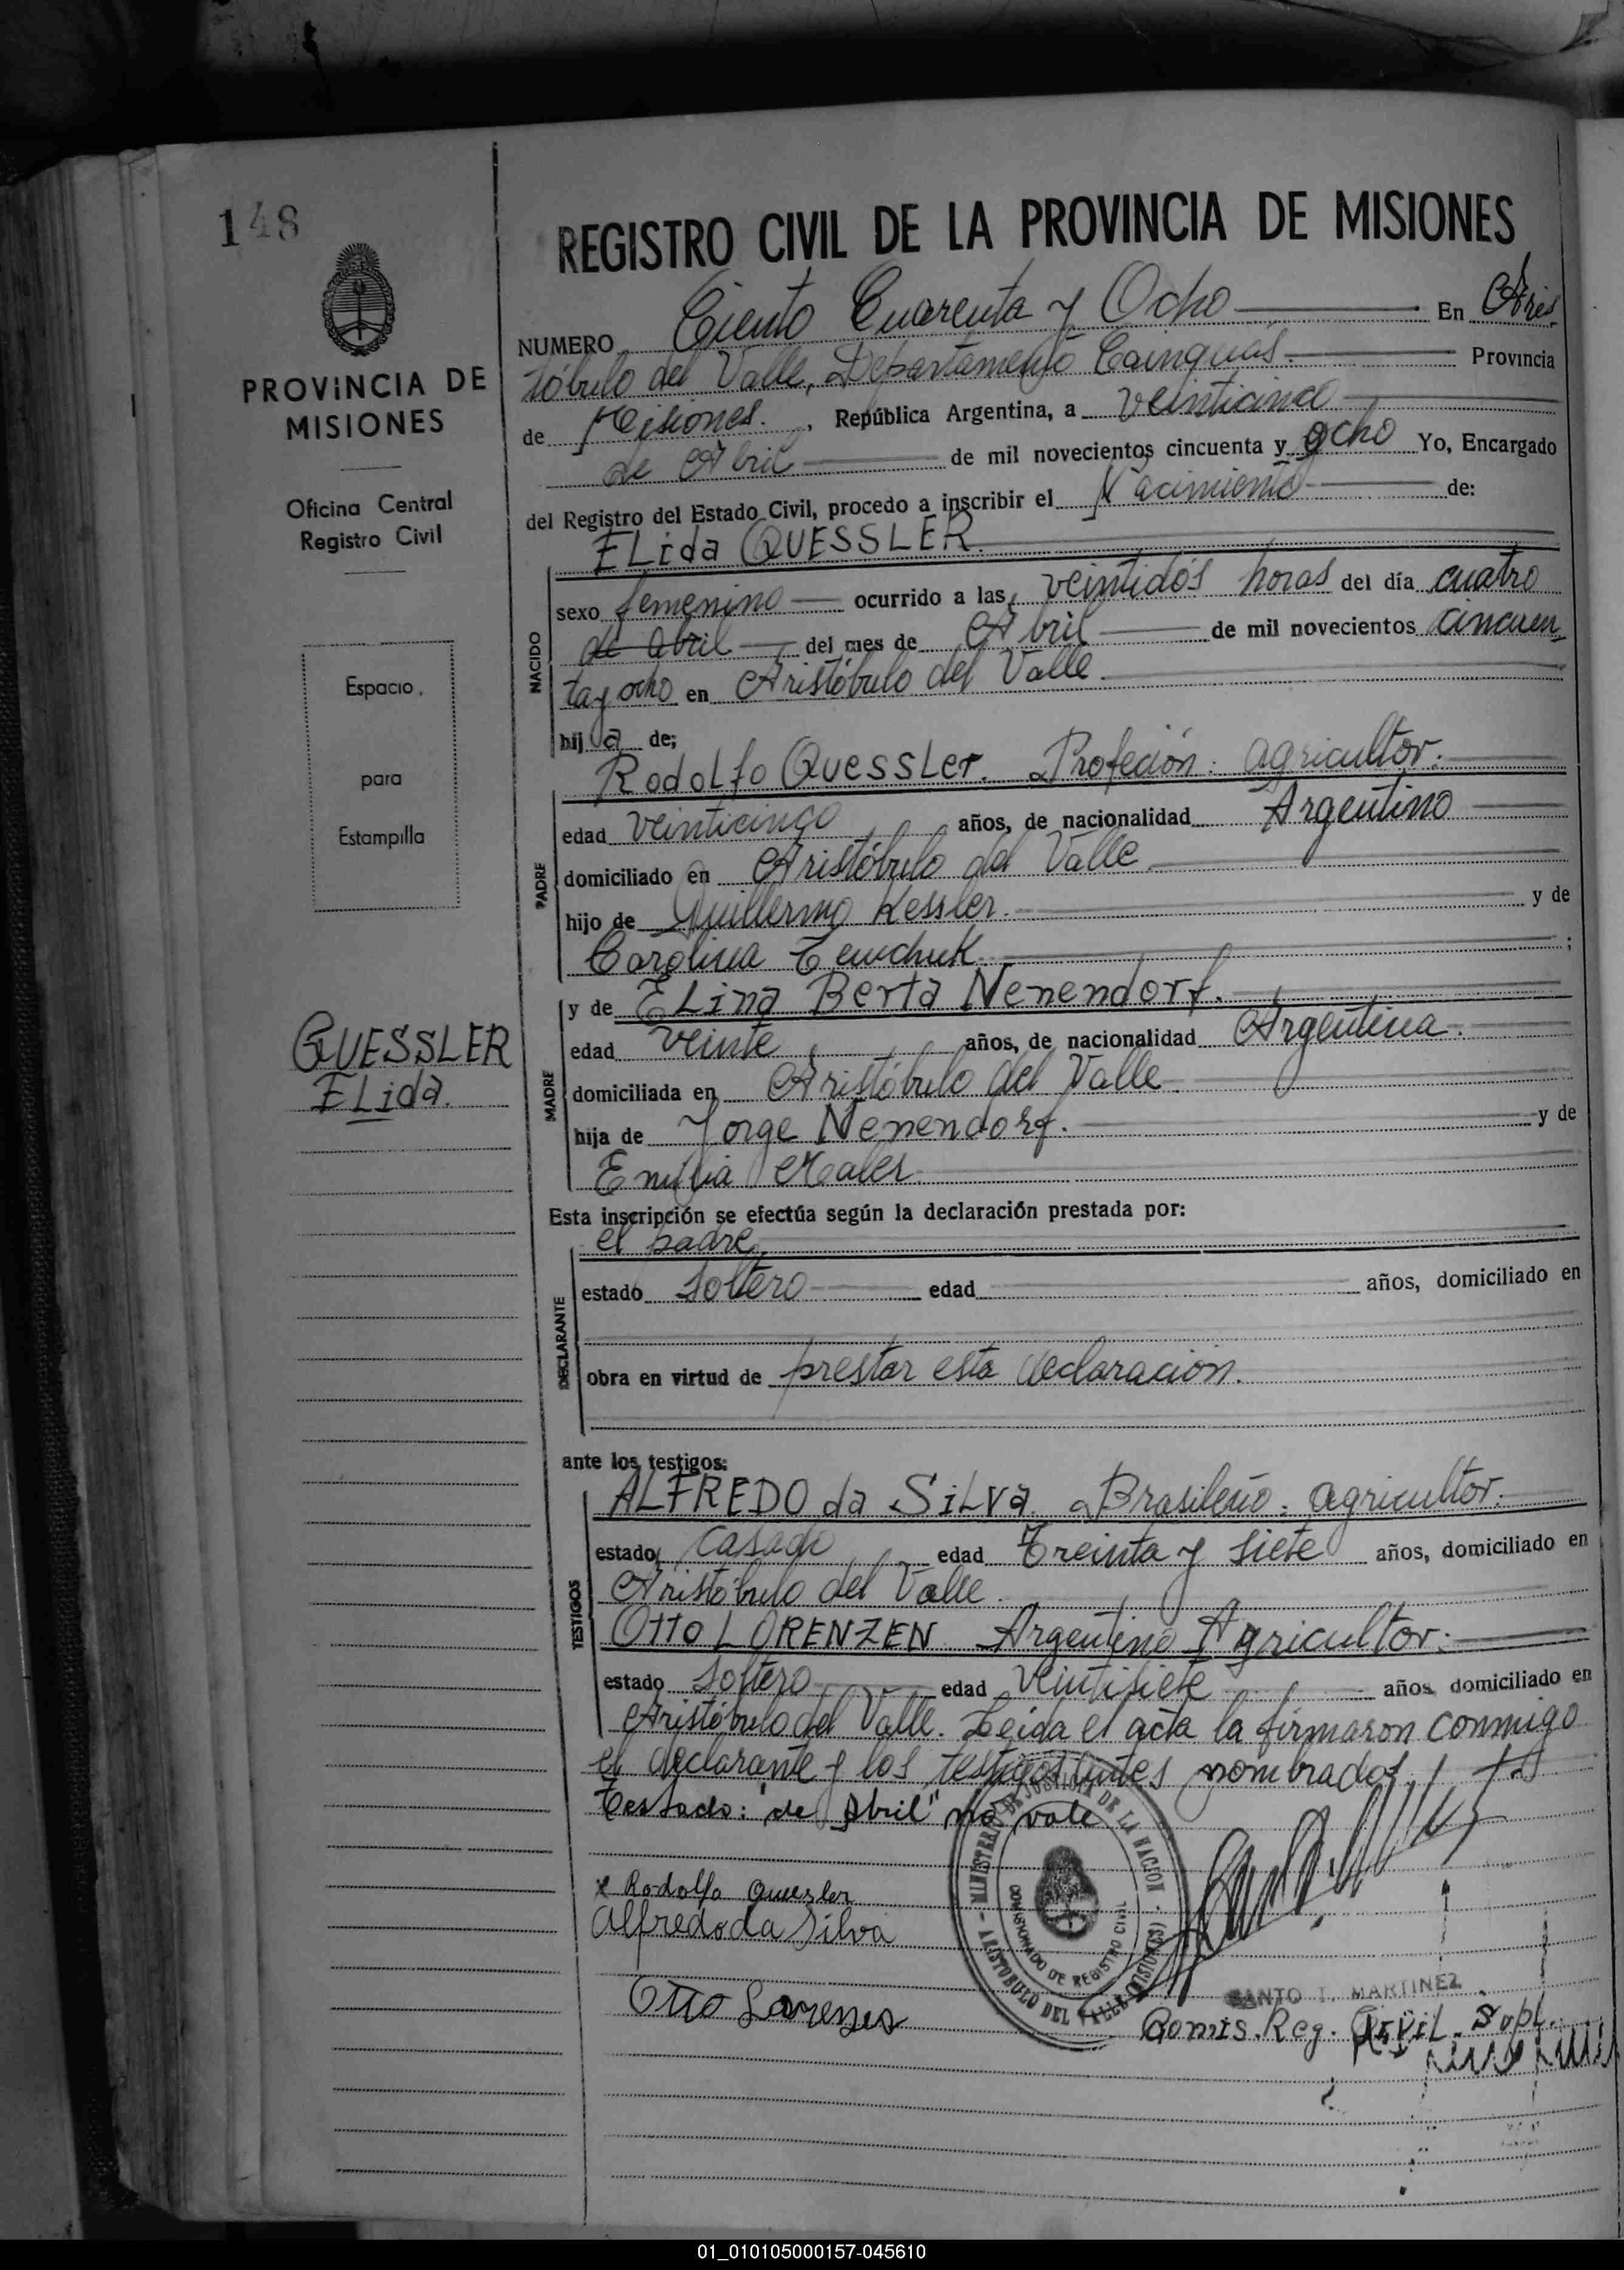 148
PROVINCIA DE
MISIONES
Oficina Central
Registro Civil
Espacio
para
Estampilla
QUESSLER
ELida.
REGISTRO CIVIL DE LA PROVINCIA DE MISIONES
NUMERO Ciento Cuarenta y Ocho En Aris
tóbulo del Valle, Departamento Cainguás. Provincia
de Misiones. , República Argentina, a veinticinco
de Abril de mil novecientos cincuenta y ocho Yo, Encargado
del Registro del Estado Civil, procedo a inscribir el Nacimiento de:
ELida QUESSLER.
NACIDO
sexo femenino ocurrido a las veintidós horas del día cuatro
de abril del mes de Abril de mil novecientos cincuen
ta y ocho en Aristóbulo del Valle.
hij a de;
PADRE
Rodolfo Quessler. Profeción: agricultor.
edad veinticinco años, de nacionalidad Argentino
domiciliado en Aristóbulo del Valle
hijo de Guillermo Kessler. y de
Carolina Temchuk. ;
MADRE
y de ELina Berta Nenendorf.
edad veinte años, de nacionalidad Argentina.
domiciliada en Aristóbulo del Valle
hija de Jorge Nenendorf. y de
Emilia
Esta inscripción se efectúa según la declaración prestada por:
DECLARANTE
el padre,
estado Soltero edad años, domiciliado en
obra en virtud de prestar esta declaración.
ante los testigos:
TESTIGOS
ALFREDO da SiLVa. Brasileño. agricultor.
estado casado edad Treinta y siete años, domiciliado en
Aristóbulo del Valle.
OTTO LORENZEN Argentino Agricultor.
estado Soltero edad veintisiete años domiciliado en
Aristóbulo del Valle. Leida el acta la firmaron conmigo
el declarante y los testigos antes nombrados.
Testado: "de Abril" no vale
x Rodolfo Quessler
Alfredo da Silva
Otto Lorenzen
MINISTERIO DE JUSTICIA DE LA NACION
COMISIONADO DE REGISTRO CIVIL
ARISTOBULO DEL VALLE (MISIONES)
SANTO T. MARTINEZ
Comis. Reg. CiViL. Supl.
01_010105000157-045610